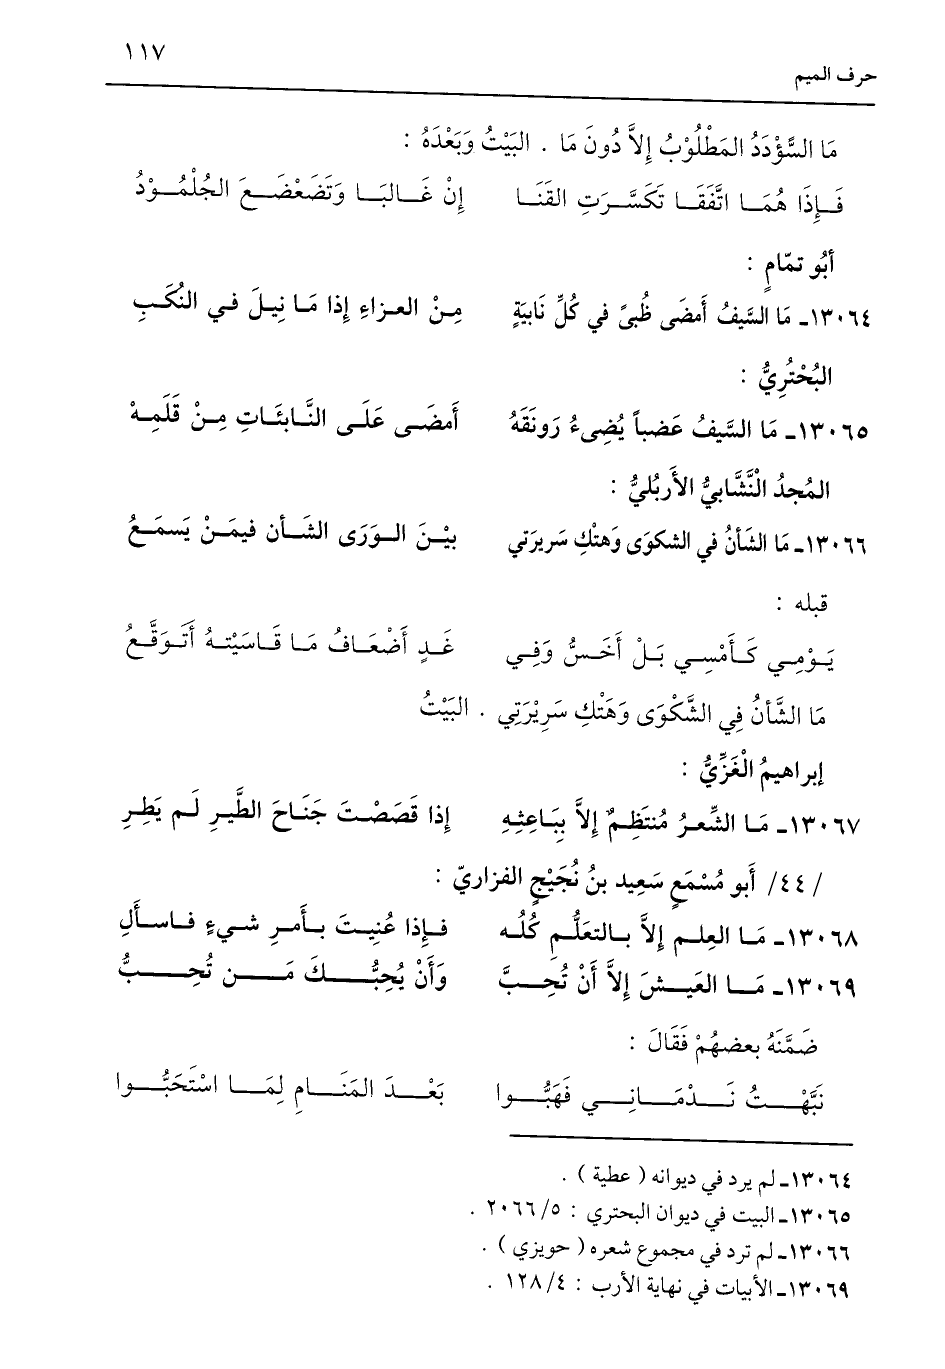 ١١٧
حرف الميم
مَا السَّؤْدَدُ المَطْلُوْبُ إِلاَّ دُونَ مَا . البَيْتُ وَبَعْدَهُ :
فَإِذَا هُمَا اتَّفَقَا تَكَسَّرَتِ القَنَا إِنْ غَالبَا وَتَضَعْضَعَ الجُلْمُوْدُ
أَبُو تمّامٍ :
١٣٠٦٤ـ مَا السَّيفُ أَمضَى ظُبىً في كُلِّ نَابيَةٍ مِنْ العزاءِ إِذا مَا نِيلَ في النُكَبِ
البُحْتُرِيُّ :
١٣٠٦٥ـ مَا السَّيفُ عَضباً يُضِيءُ رَونَقَهُ أَمضَى عَلَى النَّابئَاتِ مِنْ قَلَمِهْ
المُجدُ النَّشَّابيُّ الأَربُليُّ :
١٣٠٦٦ـ مَا الشَأنُ في الشكوَى وَهتْكِ سَريرَتي بيْنَ الورَى الشَأن فيمَنْ يَسمَعُ
قبله :
يَوْمِي كَأَمْسِي بَلْ أَخَسُّ وَفِي غَدٍ أَضْعَافُ مَا قَاسَيْتهُ أَتَوَقَّعُ
مَا الشَّأنُ فِي الشَّكْوَى وَهَتْكِ سَرِيْرَتِي . البَيْتُ
إبراهيمُ الْغَزِّيُّ :
١٣٠٦٧ـ مَا الشِّعرُ مُنتَظِمٌ إِلاَّ بِبَاعِثِهِ إِذا قَصَصْتَ جَنَاحَ الطَّيرِ لَم يَطِرِ
/٤٤/ أَبو مُسْمَعٍ سَعِيد بنُ نُجَيْحٍ الفزاريّ :
١٣٠٦٨ـ مَا العِلم إِلاَّ بالتعَلُّمِ كُلُه فإِذا عُنِيتَ بأمرِ شيءٍ فاسأَلِ
١٣٠٦٩ـ مَا العَيشَ إِلاَّ أَنْ تُحِبَّ وَأَنْ يُحِبُّكَ مَن تُحِبُّ
ضَمَّنَهُ بعضهُمْ فَقَالَ :
نَبَّهْتُ نَدْمَانِي فَهَبُّوا بَعْدَ المَنَامِ لِمَا اسْتَحَبُّوا
١٣٠٦٤ـ لم يرد في ديوانه ( عطية ) .
١٣٠٦٥ـ البيت في ديوان البحتري : ٢٠٦٦/٥ .
١٣٠٦٦ـ لم ترد في مجموع شعره ( حويزي ) .
١٣٠٦٩ـ الأبيات في نهاية الأرب : ١٢٨/٤ .